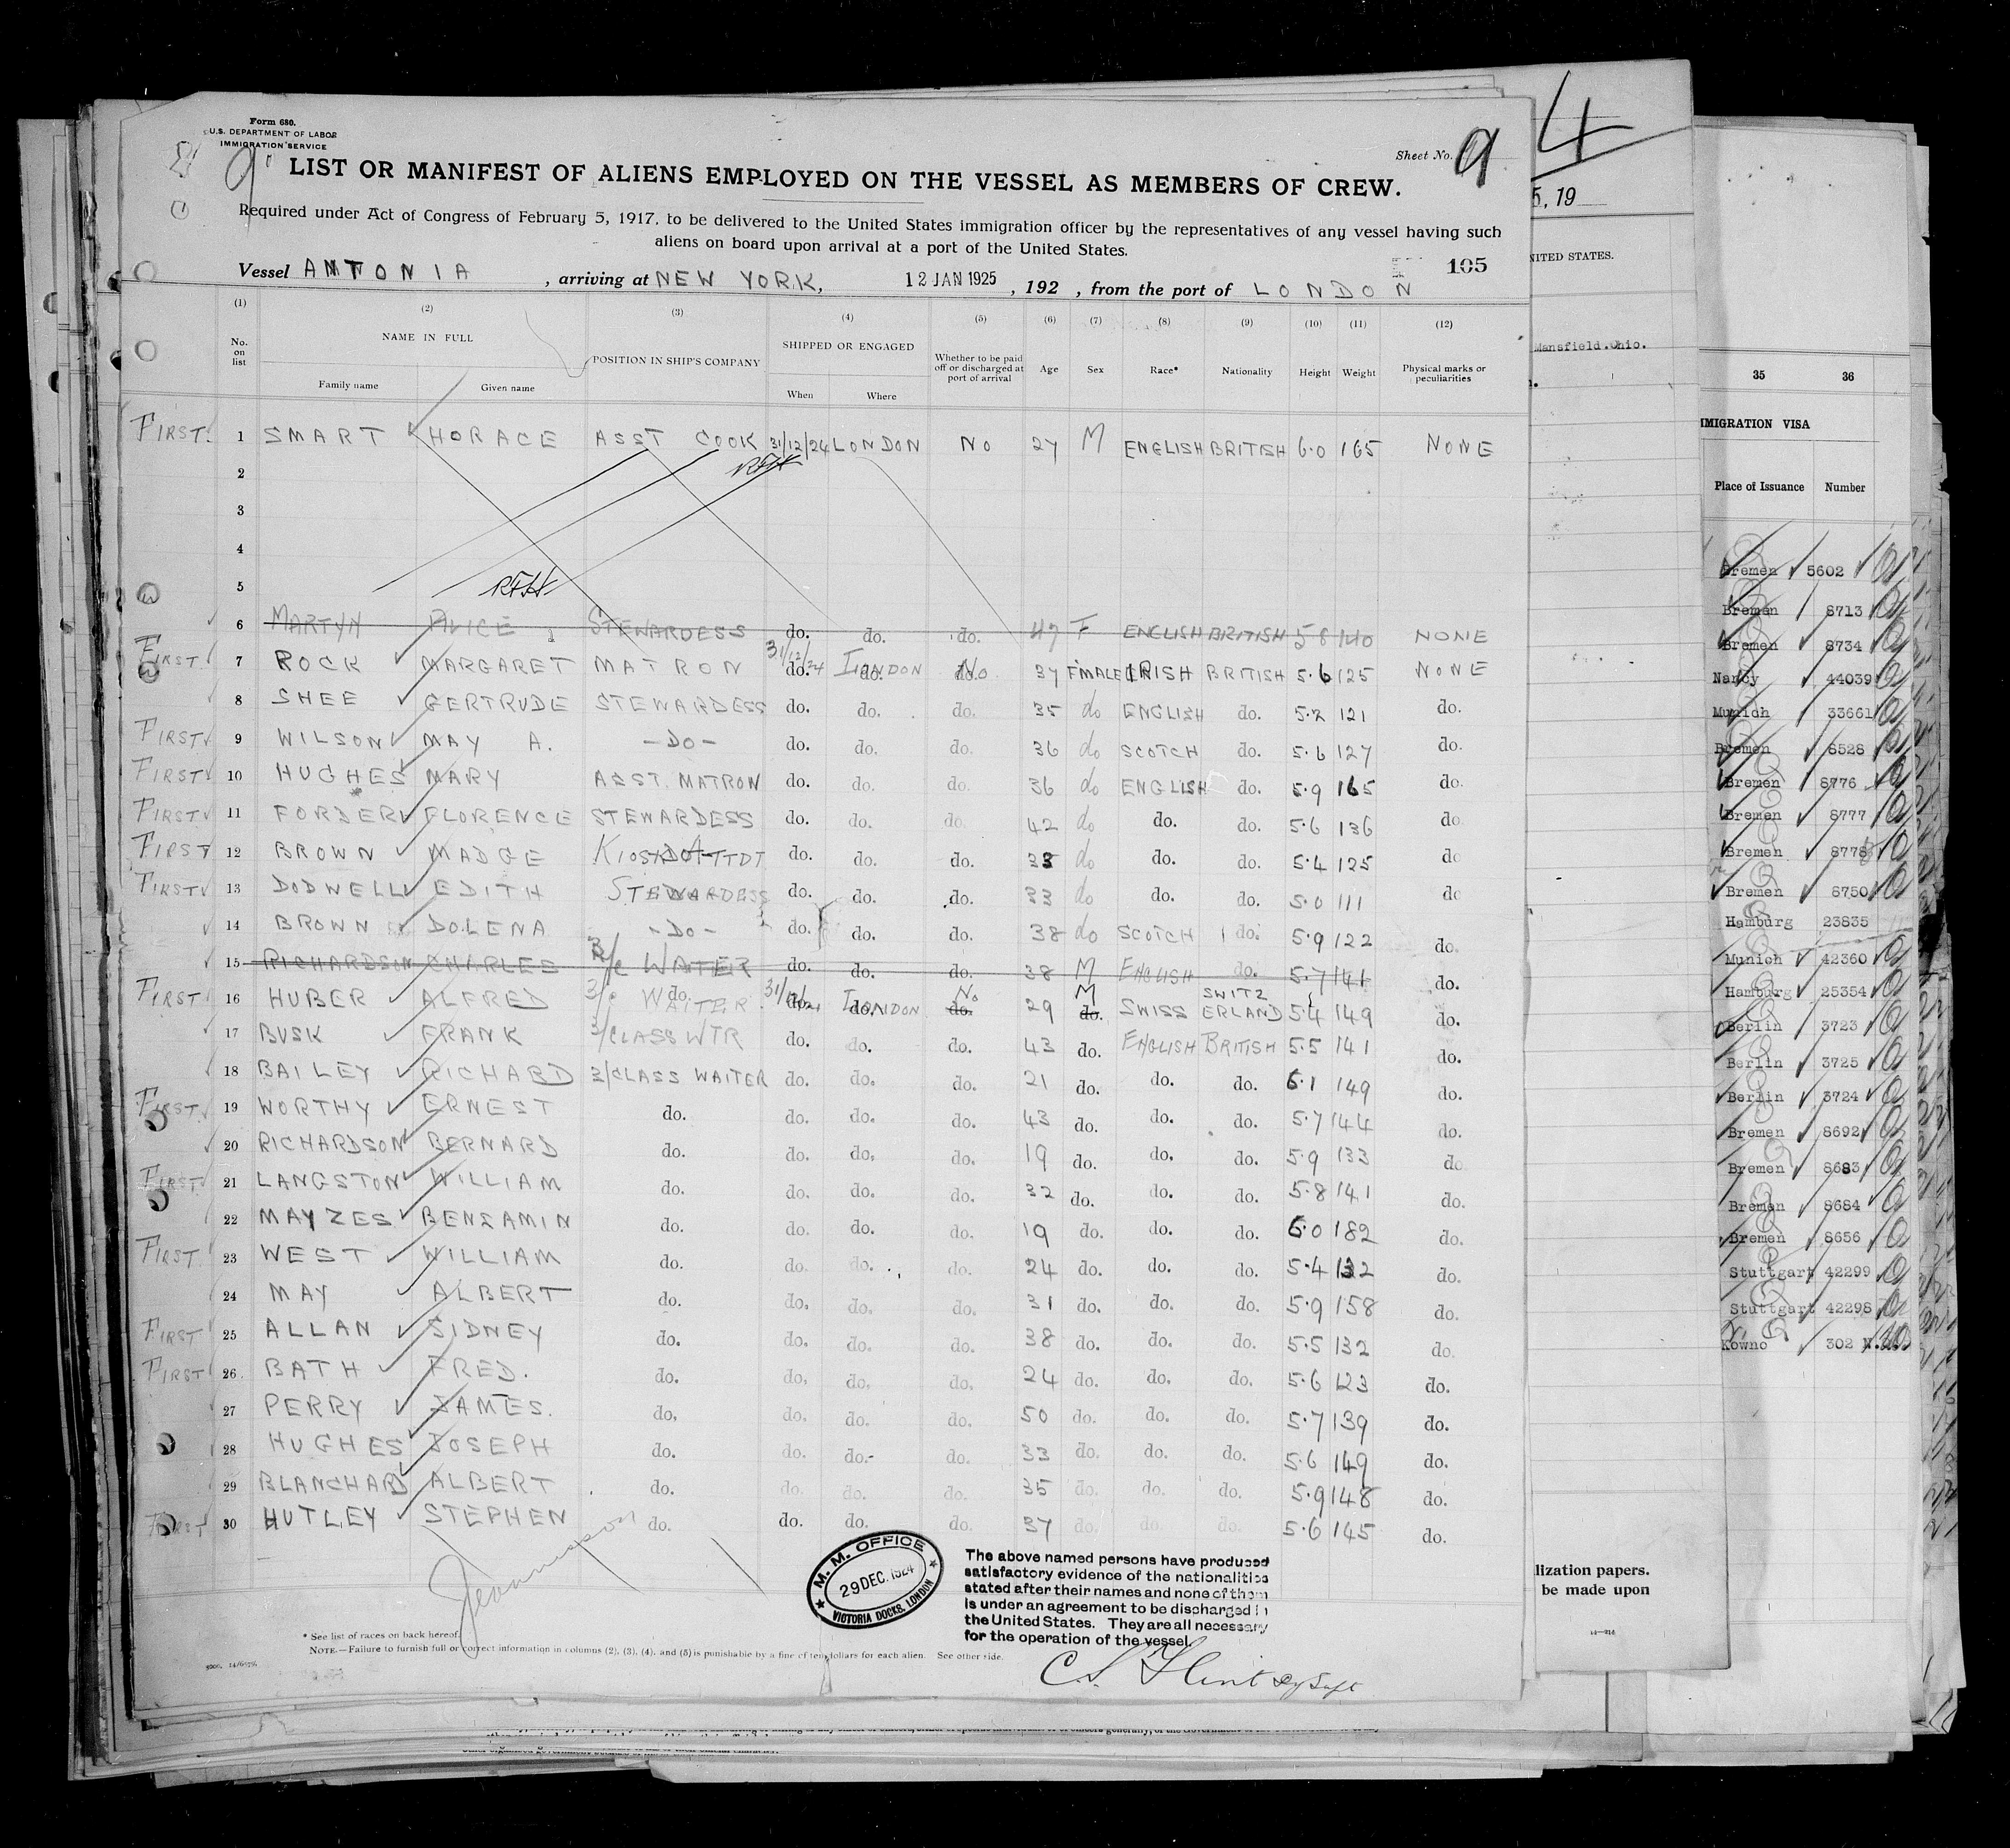 Form 680.
U.S. DEPARTMENT OF LABOR
IMMIGRATION SERVICE
9
Sheet No. 9
LIST OR MANIFEST OF ALIENS EMPLOYED ON THE VESSEL AS MEMBERS OF CREW.
Required under Act of Congress of February 5, 1917, to be delivered to the United States immigration officer by the representatives of any vessel having such
aliens on board upon arrival at a port of the United States.
105
Vessel ANTONIA , arriving at NEW YORK, 12 JAN 1925 , 192 , from the port of LONDON
(1) (2) (3) (4) (5) (6) (7) (8) (9) (10) (11) (12)
No. on list NAME IN FULL POSITION IN SHIP'S COMPANY SHIPPED OR ENGAGED Whether to be paid off or discharged at port of arrival Age Sex Race* Nationality Height Weight Physical marks or peculiarities
Family name Given name When Where
FIRST. 1 SMART HORACE ASST COOK 31/12/24 LONDON NO 27 M ENGLISH BRITISH 6.0 165 NONE
2 RFH
3
4
5 RFH
6 MARTYN ALICE STEWARDESS do. do. do. 47 F ENGLISH BRITISH 5 8 140 NONE
FIRST 7 ROCK MARGARET MATRON 31/12/24 do. LONDON do. No do. 37 FMALE IRISH BRITISH 5.6 125 NONE
8 SHEE GERTRUDE STEWARDESS do. do. do. 35 do ENGLISH do. 5.2 121 do.
FIRST 9 WILSON MAY A. -DO- do. do. do. 36 do SCOTCH do. 5.6 127 do.
FIRST 10 HUGHES MARY ASST. MATRON do. do. do. 36 do ENGLISH do. 5.9 165 do.
FIRST 11 FORDER FLORENCE STEWARDESS do. do. do. 42 do do. do. 5.6 136 do.
FIRST 12 BROWN MADGE KIOSK ATTDT do. do. do. 38 do do. do. 5.4 125 do
FIRST 13 DODWELL EDITH STEWARDESS do. do. do. 33 do do. do. 5.0 111 do
14 BROWN DOLENA -DO- do. do. do. 38 do SCOTCH do. 5.9 122 do.
15 RICHARDSON CHARLES 3/c WAITER do. do. do. 38 M ENGLISH do. 5.7 141 do.
FIRST 16 HUBER ALFRED 3/c WAITER do. 31/12/24 do. LONDON do. No do. 29 M do. SWISS SWITZERLAND 5.4 149 do.
17 BUSK FRANK 3/CLASS WTR do. do. do. 43 do. ENGLISH BRITISH 5.5 141 do.
18 BAILEY RICHARD 3/CLASS WAITER do. do. do. 21 do. do. do. 6.1 149 do.
FIRST 19 WORTHY ERNEST do. do. do. do. 43 do. do. do. 5.7 144 do.
20 RICHARDSON BERNARD do. do. do. do. 19 do. do. do. 5.9 133 do.
FIRST 21 LANGSTON WILLIAM do. do. do. do. 32 do. do. do. 5.8 141 do.
22 MAYZES BENJAMIN do. do. do. do. 19 do. do. do. 6.0 182 do.
FIRST 23 WEST WILLIAM do. do. do. do. 24 do. do. do. 5.4 132 do.
24 MAY ALBERT do. do. do. do. 31 do. do. do. 5.9 158 do.
FIRST 25 ALLAN SIDNEY do. do. do. do. 38 do. do. do. 5.5 132 do.
FIRST 26 BATH FRED. do. do. do. do. 24 do. do. do. 5.6 123 do.
27 PERRY JAMES. do. do. do. do. 50 do. do. do. 5.7 139 do.
28 HUGHES JOSEPH do. do. do. do. 33 do. do. do. 5.6 149 do.
29 BLANCHARD ALBERT do. do. do. do. 35 do. do. do. 5.9 148 do.
FIRST 30 HUTLEY STEPHEN do. do. do. do. 37 do. do. do. 5.6 145 do.
M. M. OFFICE
29 DEC. 1924
VICTORIA DOCKS, LONDON
The above named persons have produced
satisfactory evidence of the nationalities
stated after their names and none of them
is under an agreement to be discharged in
the United States. They are all necessary
for the operation of the vessel.
* See list of races on back hereof.
NOTE.—Failure to furnish full or correct information in columns (2), (3), (4), and (5) is punishable by a fine of ten dollars for each alien. See other side.
C. S. Flint
4
5, 19
NITED STATES.
Mansfield.Ohio.
lization papers.
be made upon
14—214
35 36
MIGRATION VISA
Place of Issuance Number
Bremen 5602
Bremen 8713
Bremen 8734
Nancy 44039
Munich 33661
Bremen 8528
Bremen 8776
Bremen 8777
Bremen 8778
Bremen 8750
Hamburg 23835
Munich 42360
Hamburg 25354
Berlin 3723
Berlin 3725
Berlin 3724
Bremen 8692
Bremen 8683
Bremen 8684
Bremen 8656
Stuttgart 42299
Stuttgart 42298
Kowno 302